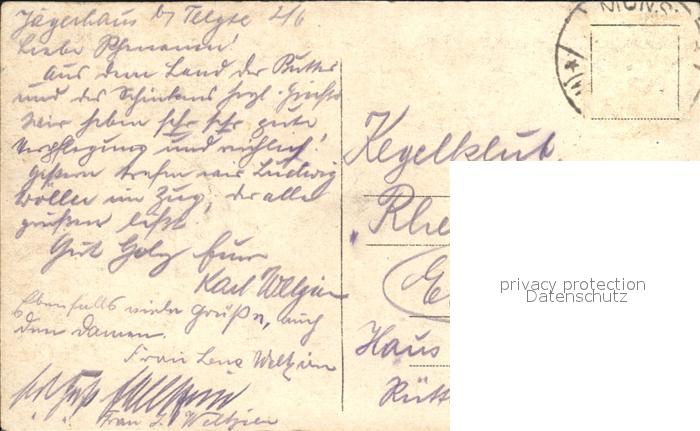 Jägerhaus b/ Telgte 2/6
Liebe Rhenanen!
Aus dem Land der Butter
und des Schinkens herzl. Grüße
Wir haben sehr sehr gute
Verpflegung und reichlich!
Gestern trafen wir Ludwig
Wöller im Zug, der alle
grüßen läßt.
Gut Holz Euer
Karl Weltzien
Ebenfalls viele Grüße, auch
den Damen.
Frau Lena Weltzien
Frau L. Weltzien
MÜNS
Kegelklub
Rhe
E
Haus
Rütt
privacy protection
Datenschutz